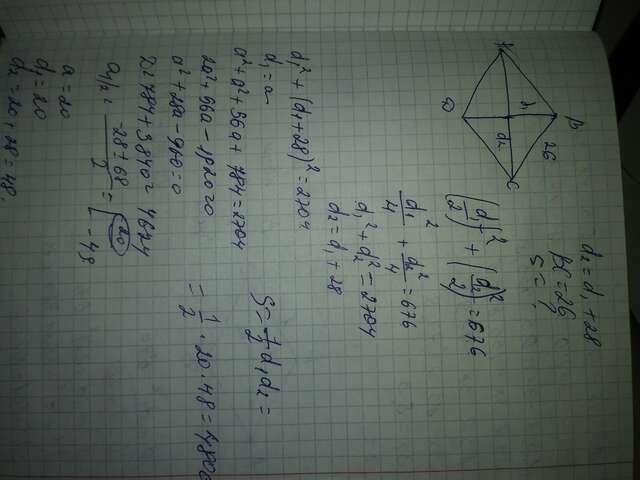 A
B
C
D
d₁
d₂
26
d₂ = d₁ + 28
BC = 26
S = ?
(d₁/2)² + (d₂/2)² = 676
d₁²/4 + d₂²/4 = 676
d₁² + d₂² = 2704
d₂ = d₁ + 28
d₁² + (d₁ + 28)² = 2704
d₁ = a
a² + a² + 56a + 784 = 2704
2a² + 56a - 1920 = 0
a² + 28a - 960 = 0
D = 784 + 3840 = 4624
a₁/₂ = (-28 ± 68)/2 = [ 20
-48
a = 20
d₁ = 20
d₂ = 20 + 28 = 48.
S = 1/2 d₁ d₂ =
= 1/2 · 20 · 48 = 480